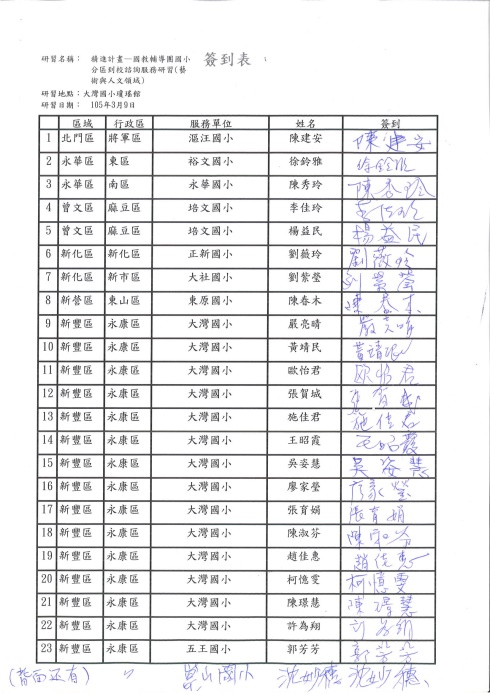 研習名稱： 精進計畫—國教輔導團國小 簽到表
分區到校諮詢服務研習(藝
術與人文領域)
研習地點：大灣國小瓊瑤館
研習日期： 105年3月9日
區域 行政區 服務單位 姓名 簽到
1 北門區 將軍區 漚汪國小 陳建安 陳建安
2 永華區 東區 裕文國小 徐鈴雅 徐鈴雅
3 永華區 南區 永華國小 陳秀玲 陳秀玲
4 曾文區 麻豆區 培文國小 李佳玲 李佳玲
5 曾文區 麻豆區 培文國小 楊益民 楊益民
6 新化區 新化區 正新國小 劉薇玲 劉薇玲
7 新化區 新市區 大社國小 劉紫瑩 劉紫瑩
8 新營區 東山區 東原國小 陳春木 陳春木
9 新豐區 永康區 大灣國小 嚴亮晴 嚴亮晴
10 新豐區 永康區 大灣國小 黃靖民 黃靖民
11 新豐區 永康區 大灣國小 歐怡君 歐怡君
12 新豐區 永康區 大灣國小 張賀城 張賀城
13 新豐區 永康區 大灣國小 施佳君 施佳君
14 新豐區 永康區 大灣國小 王昭霞 王昭霞
15 新豐區 永康區 大灣國小 吳姿慧 吳姿慧
16 新豐區 永康區 大灣國小 廖家瑩 廖家瑩
17 新豐區 永康區 大灣國小 張育娟 張育娟
18 新豐區 永康區 大灣國小 陳淑芬 陳淑芬
19 新豐區 永康區 大灣國小 趙佳惠 趙佳惠
20 新豐區 永康區 大灣國小 柯憶雯 柯憶雯
21 新豐區 永康區 大灣國小 陳璟慧 陳璟慧
22 新豐區 永康區 大灣國小 許為翔 許為翔
23 新豐區 永康區 五王國小 郭芳芳 郭芳芳
(背面还有) 〃 山國小 沈妙穗 沈妙穗